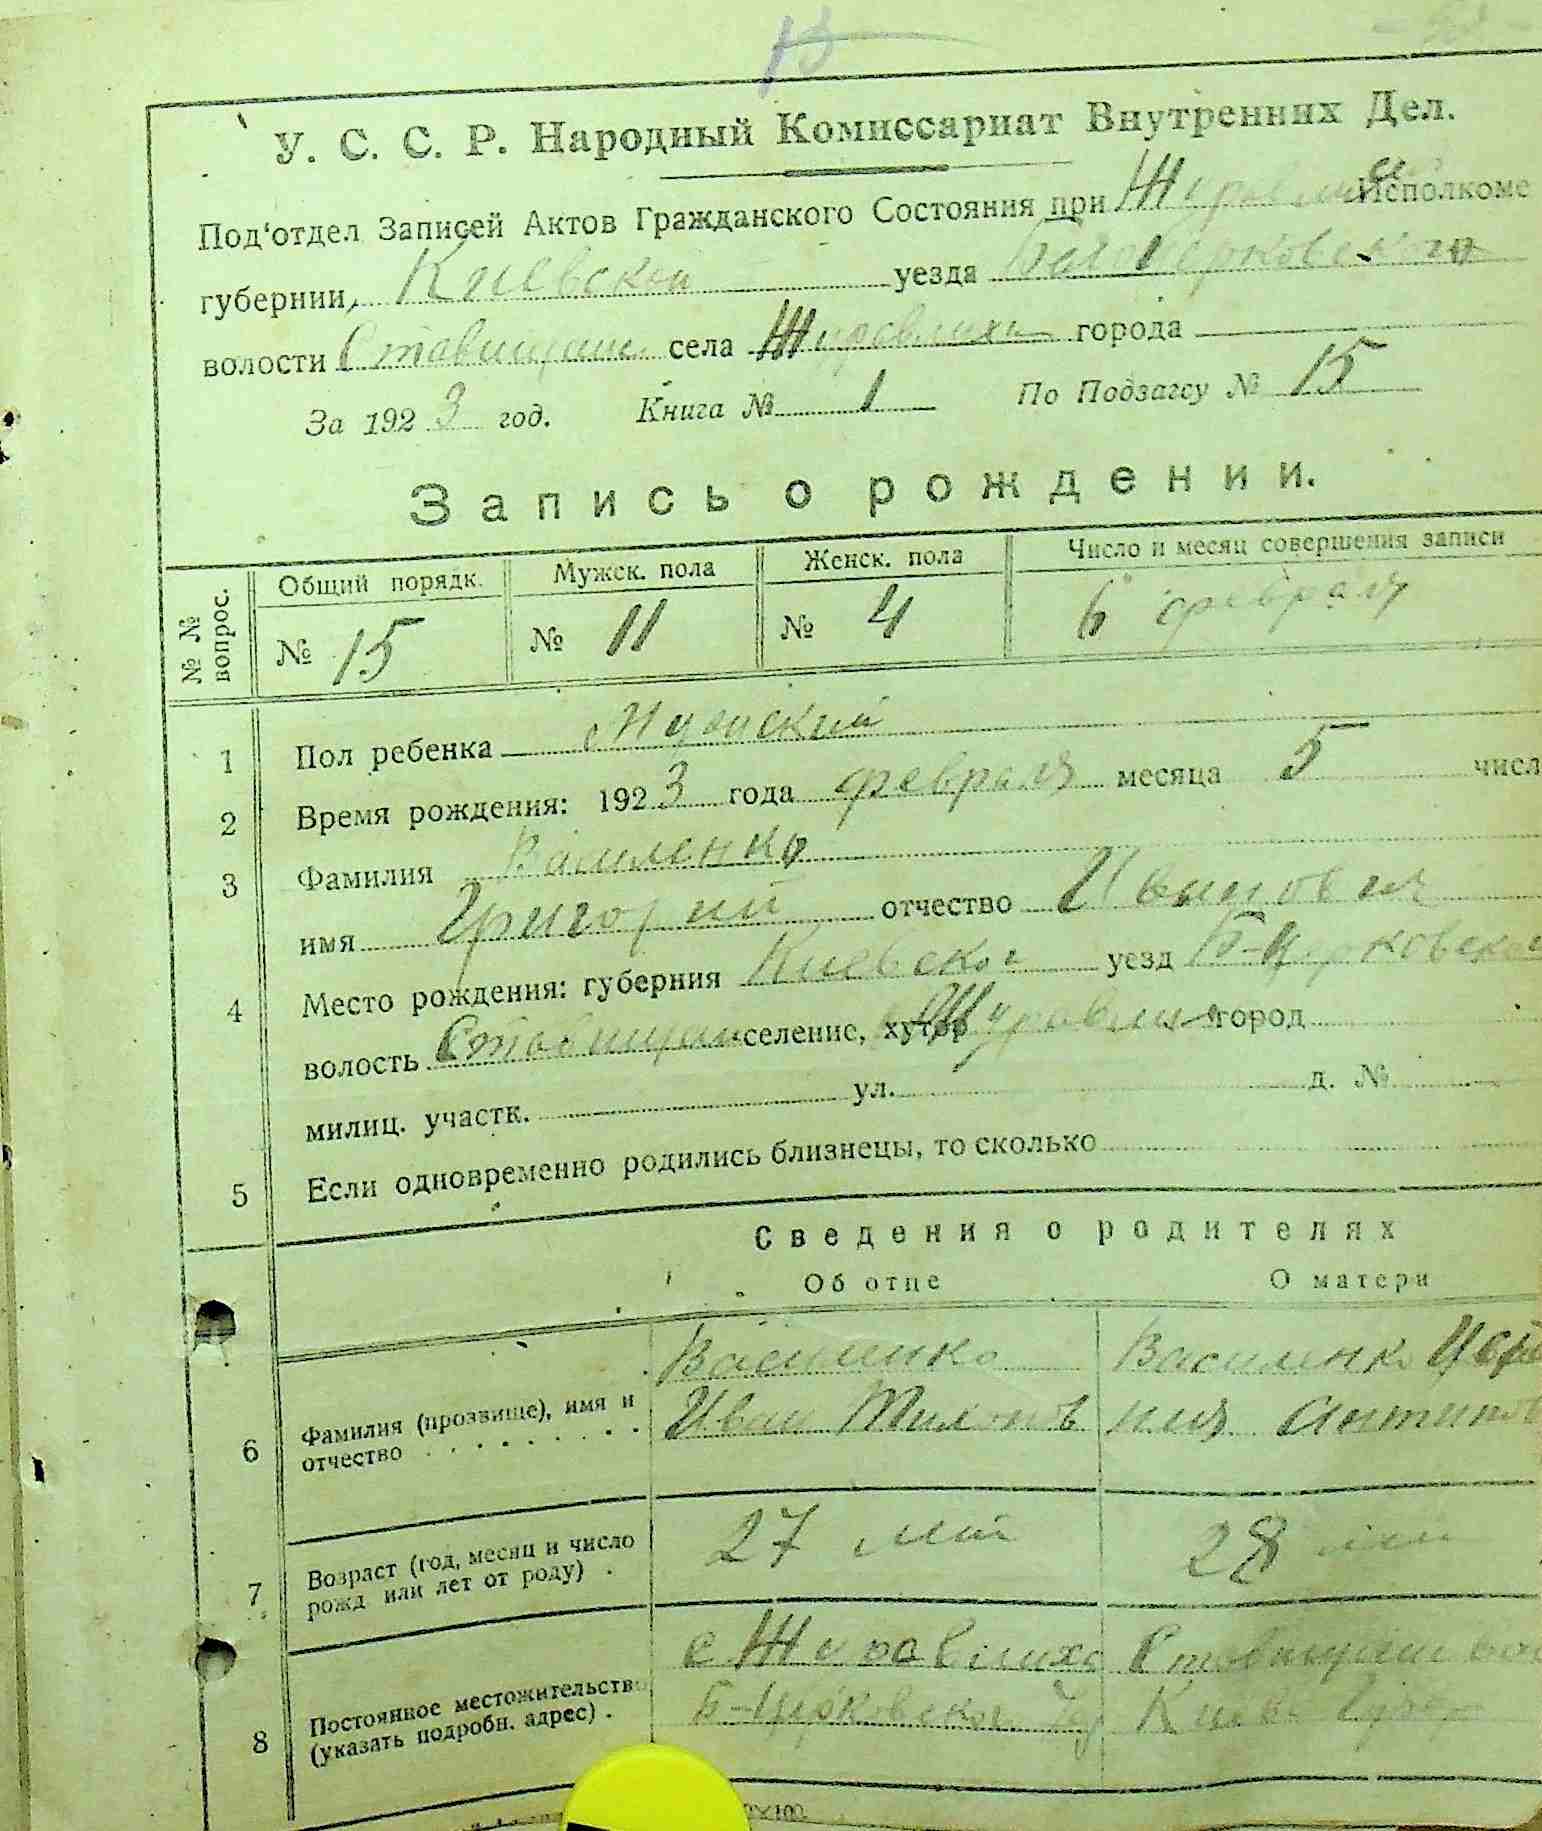 15
У. С. С. Р. Народный Комиссариат Внутренних Дел.
Под‘отдел Записей Актов Гражданского Состояния при Исполкоме
губернии, Киевской уезда Белоцерковского
волости Ставищан. села Журавлиха города
За 1923 год. Книга № 1 По Подзагсу № 15
Запись о рождении.
№ № вопрос.
Общий порядк. Мужск. пола Женск. пола Число и месяц совершения записи
№ 15 № 11 № 4 6 февраля
1 Пол ребенка Мужский
2 Время рождения: 1923 года февраля месяца 5 числ
3 Фамилия Василенко
имя Григорий отчество Иванович
4 Место рождения: губерния Киевской уезд Б-Церковской
волость Ставищан селение, хутор город
милиц. участк. ул. д. №
5 Если одновременно родились близнецы, то сколько
Сведения о родителях
Об отце О матери
Василенко Василенко
6 Фамилия (прозвище), имя и Иван Тихонов
отчество
7 Возраст (год, месяц и число 27 лет 28 лет
рожд или лет от роду) .
с Журавлиха
8 Постоянное местожительство Б-Церковского
(указать подробн. адрес) . Киевс Губер